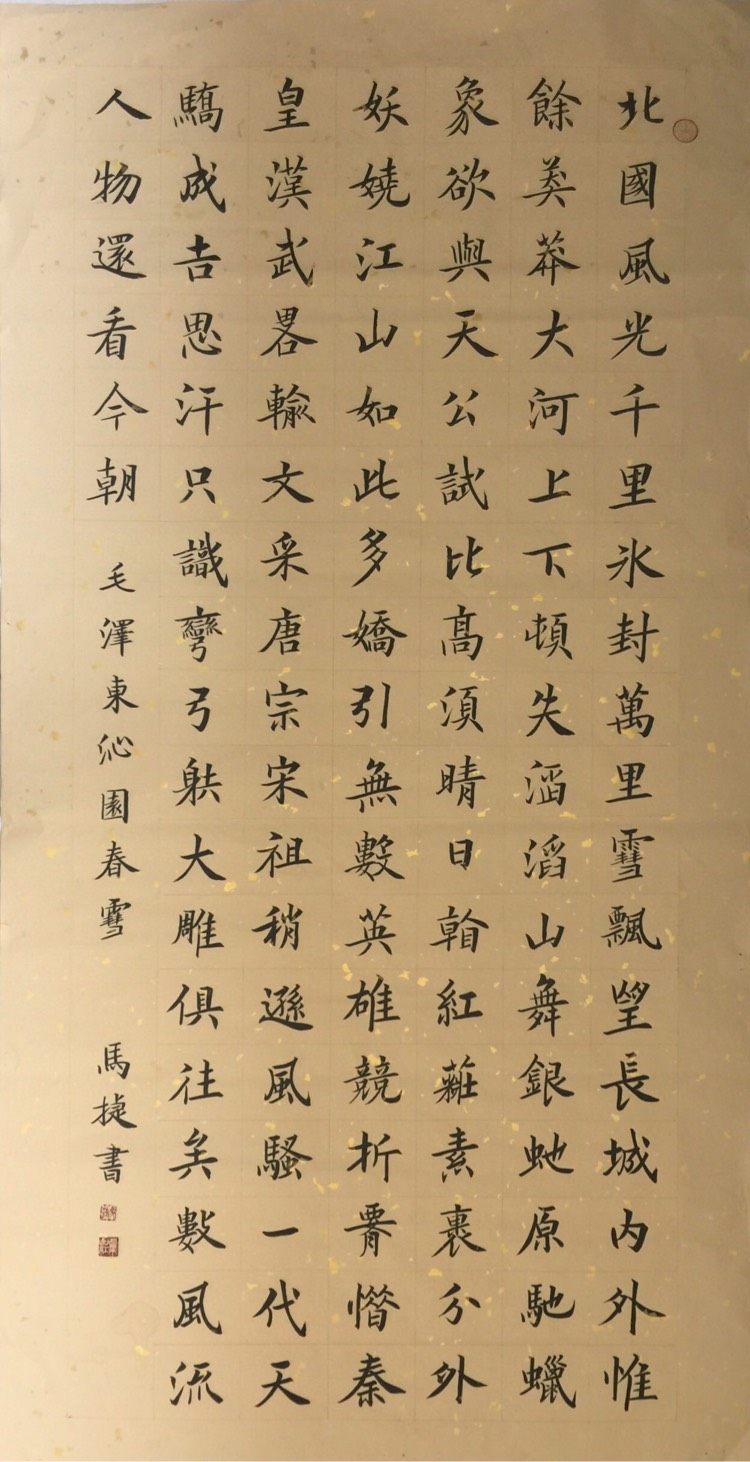 北國風光千里氷封萬里雪飄望長城内外惟
餘莽莽大河上下頓失滔滔山舞銀虵原馳蠟
象欲與天公試比高須晴日看紅粧素裹分外
妖嬈江山如此多嬌引無數英雄競折腰惜秦
皇漢武畧輸文采唐宗宋祖稍遜風騷一代天
驕成吉思汗只識彎弓射大雕俱往矣數風流
人物還看今朝
毛澤東沁園春雪
馬捷書